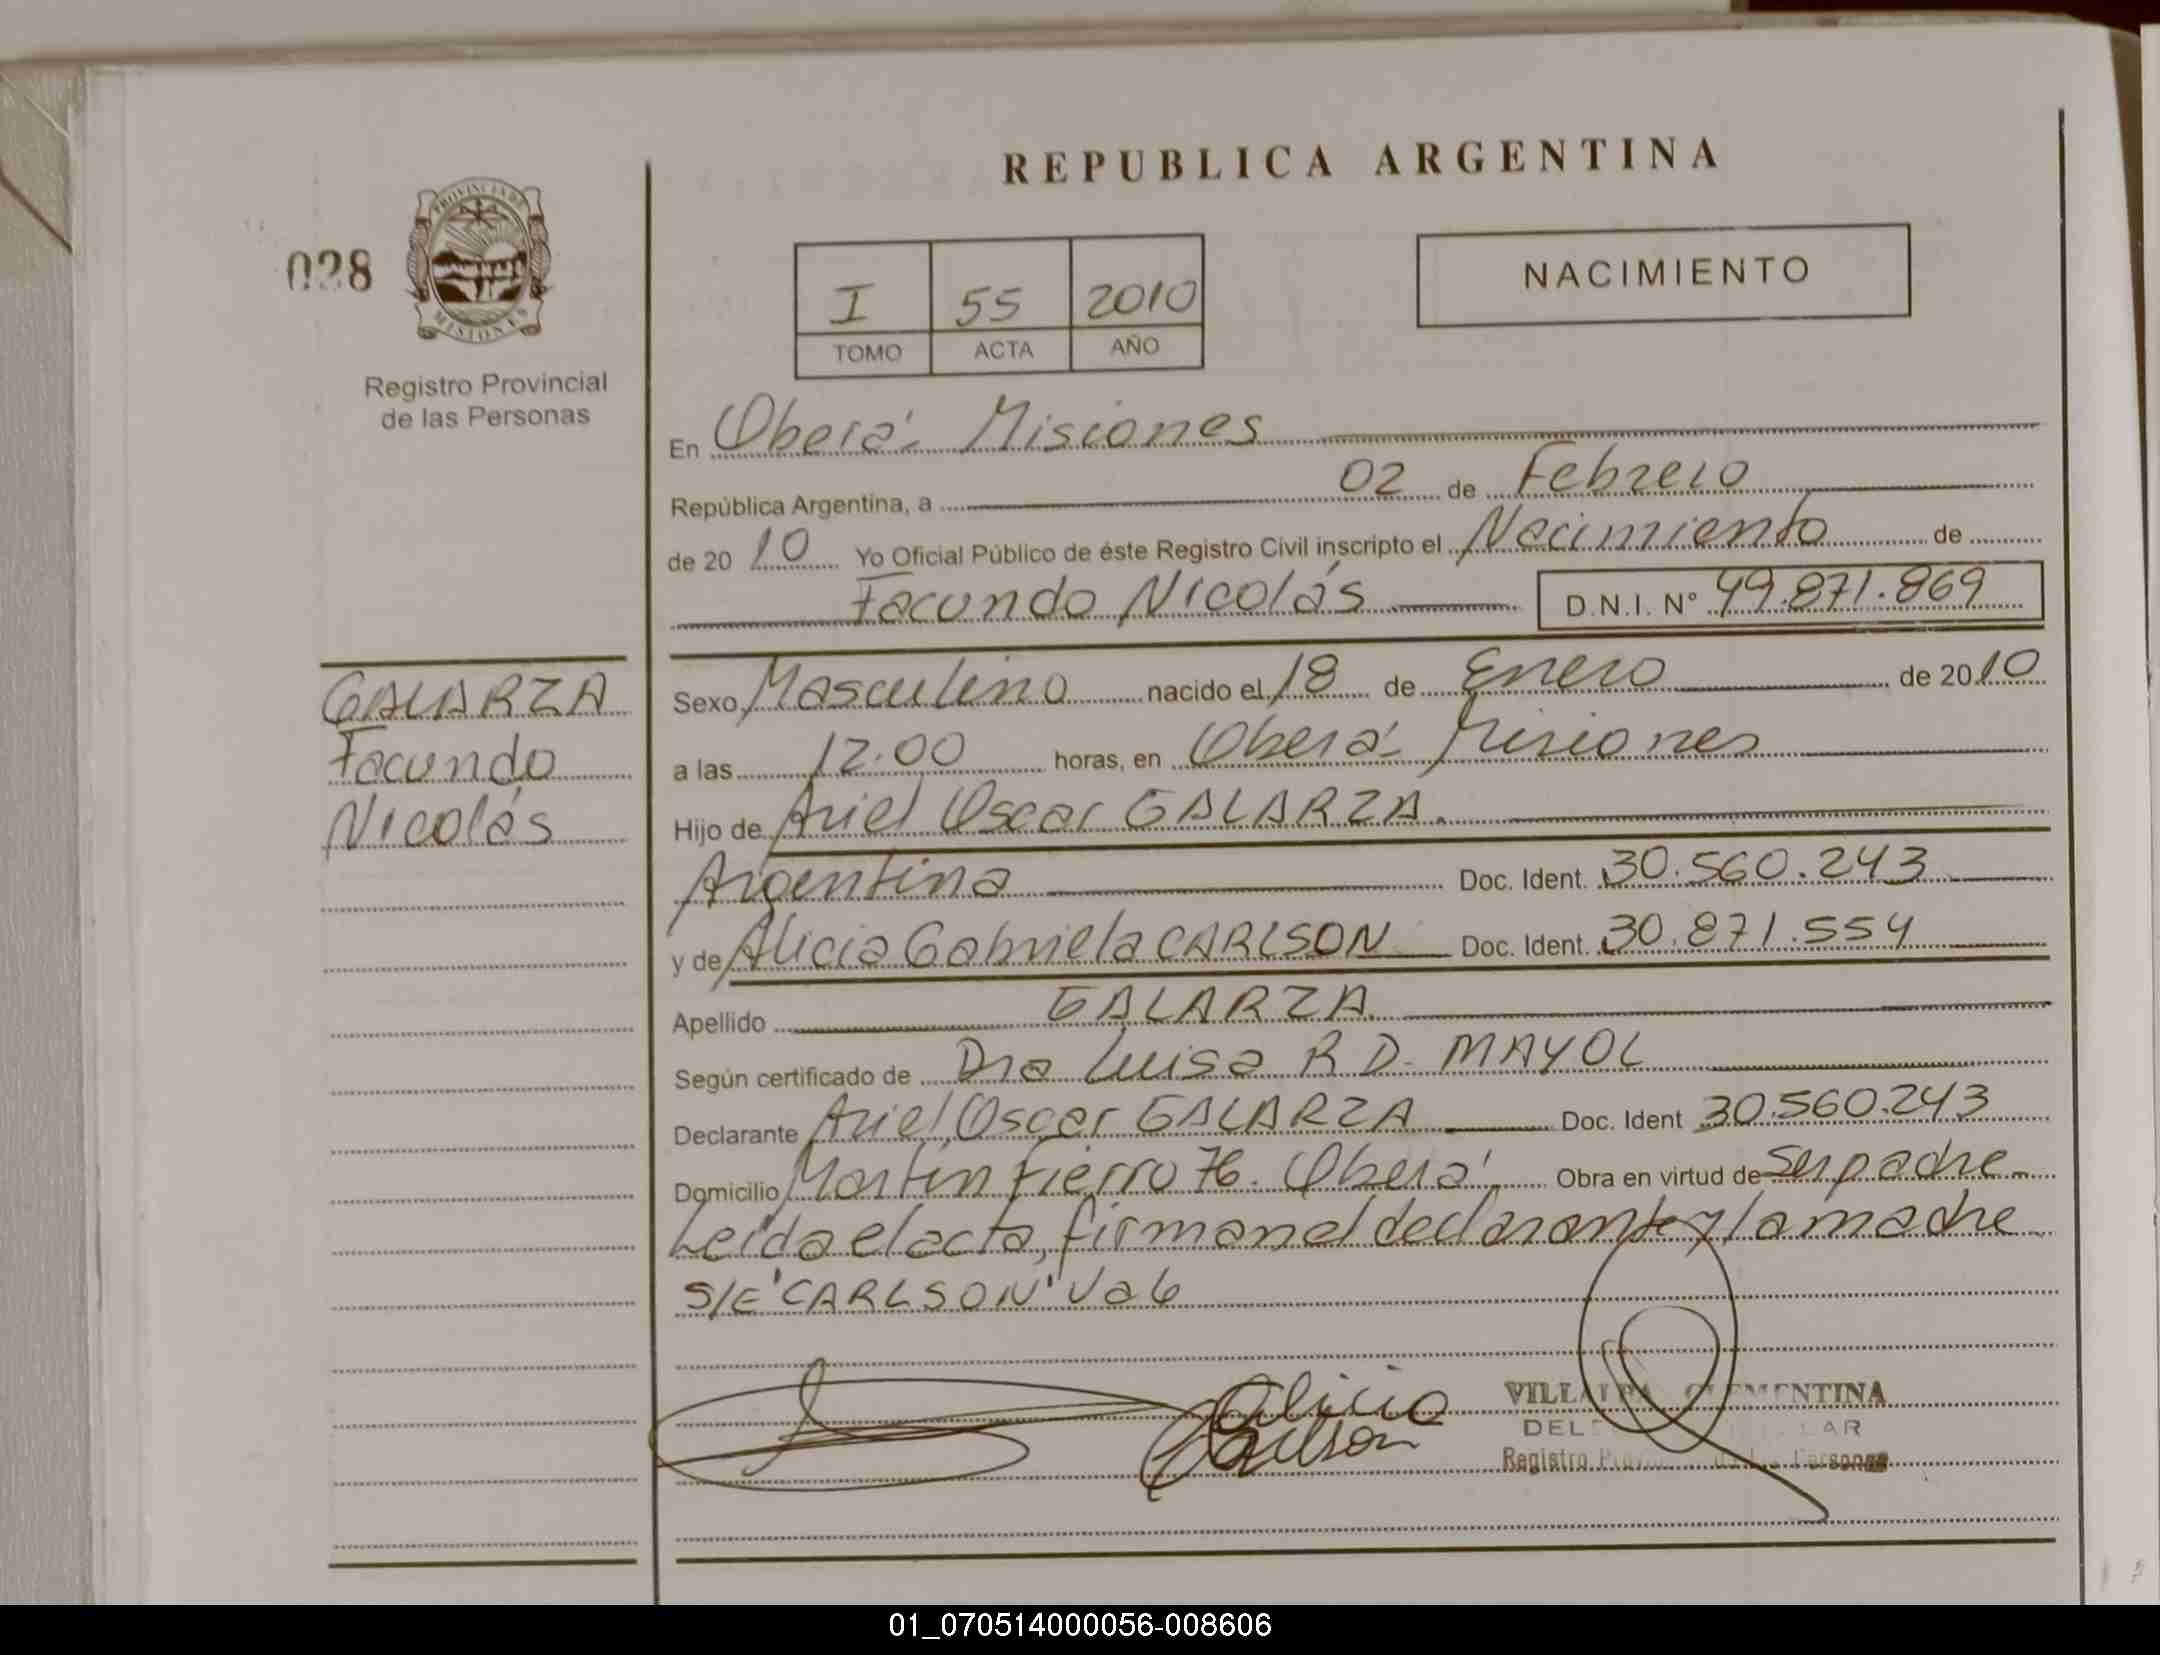 REPUBLICA ARGENTINA
028
PROVINCIA DE
MISIONES
Registro Provincial
de las Personas
I 55 2010
TOMO ACTA AÑO
NACIMIENTO
En Oberá- Misiones
República Argentina, a 02 de Febrero
de 20 10 Yo Oficial Público de éste Registro Civil inscripto el Nacimiento de
Facundo Nicolás D.N.I. Nº 49.871.869
GALARZA
Facundo
Nicolás
Sexo Masculino nacido el 18 de Enero de 2010
a las 12.00 horas, en Oberá- Misiones
Hijo de Ariel Oscar GALARZA.
Argentina Doc. Ident. 30.560.243
y de Alicia Gabriela CARLSON Doc. Ident. 30.871.554
Apellido GALARZA
Según certificado de Dra Luisa R D. MAYOL
Declarante Ariel Oscar GALARZA Doc. Ident 30.560.243
Domicilio Martín Fierro 76. Oberá. Obra en virtud de Ser padre
Leída el acta, firman el declarante y la madre
S/E "CARLSON" Vale
Alicia
Carlson
VILLALBA CLEMENTINA
Registro
01_070514000056-008606